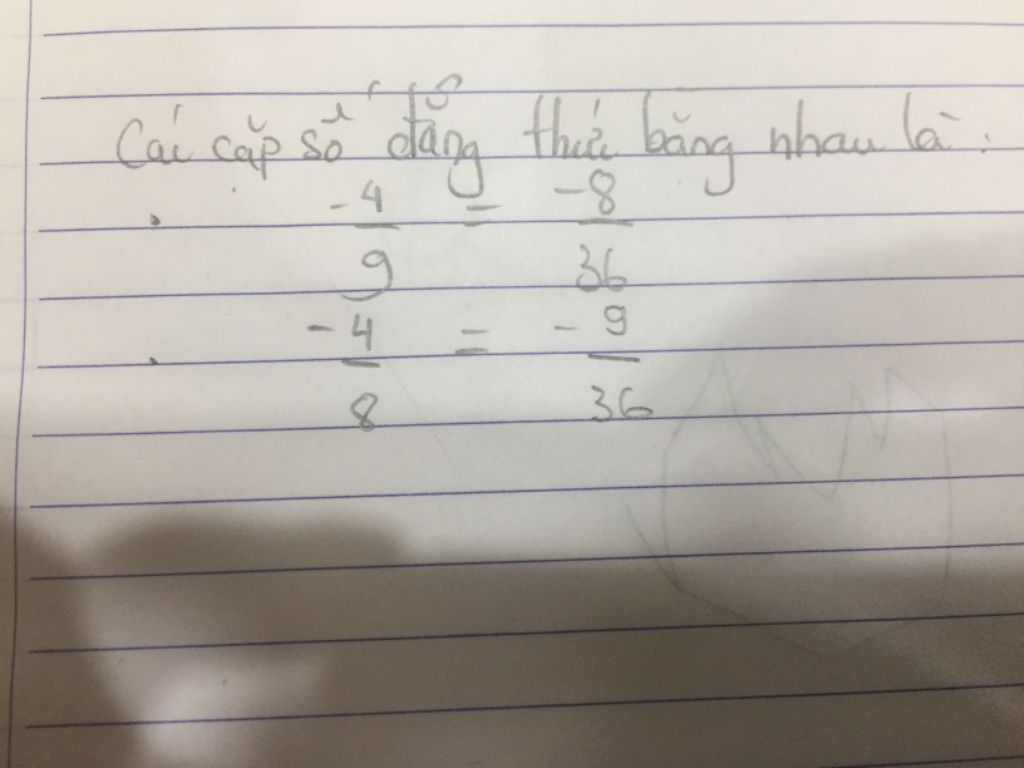 Các cặp số đẳng thức bằng nhau là:
. -4/9 = -8/36
. -4/8 = -9/36